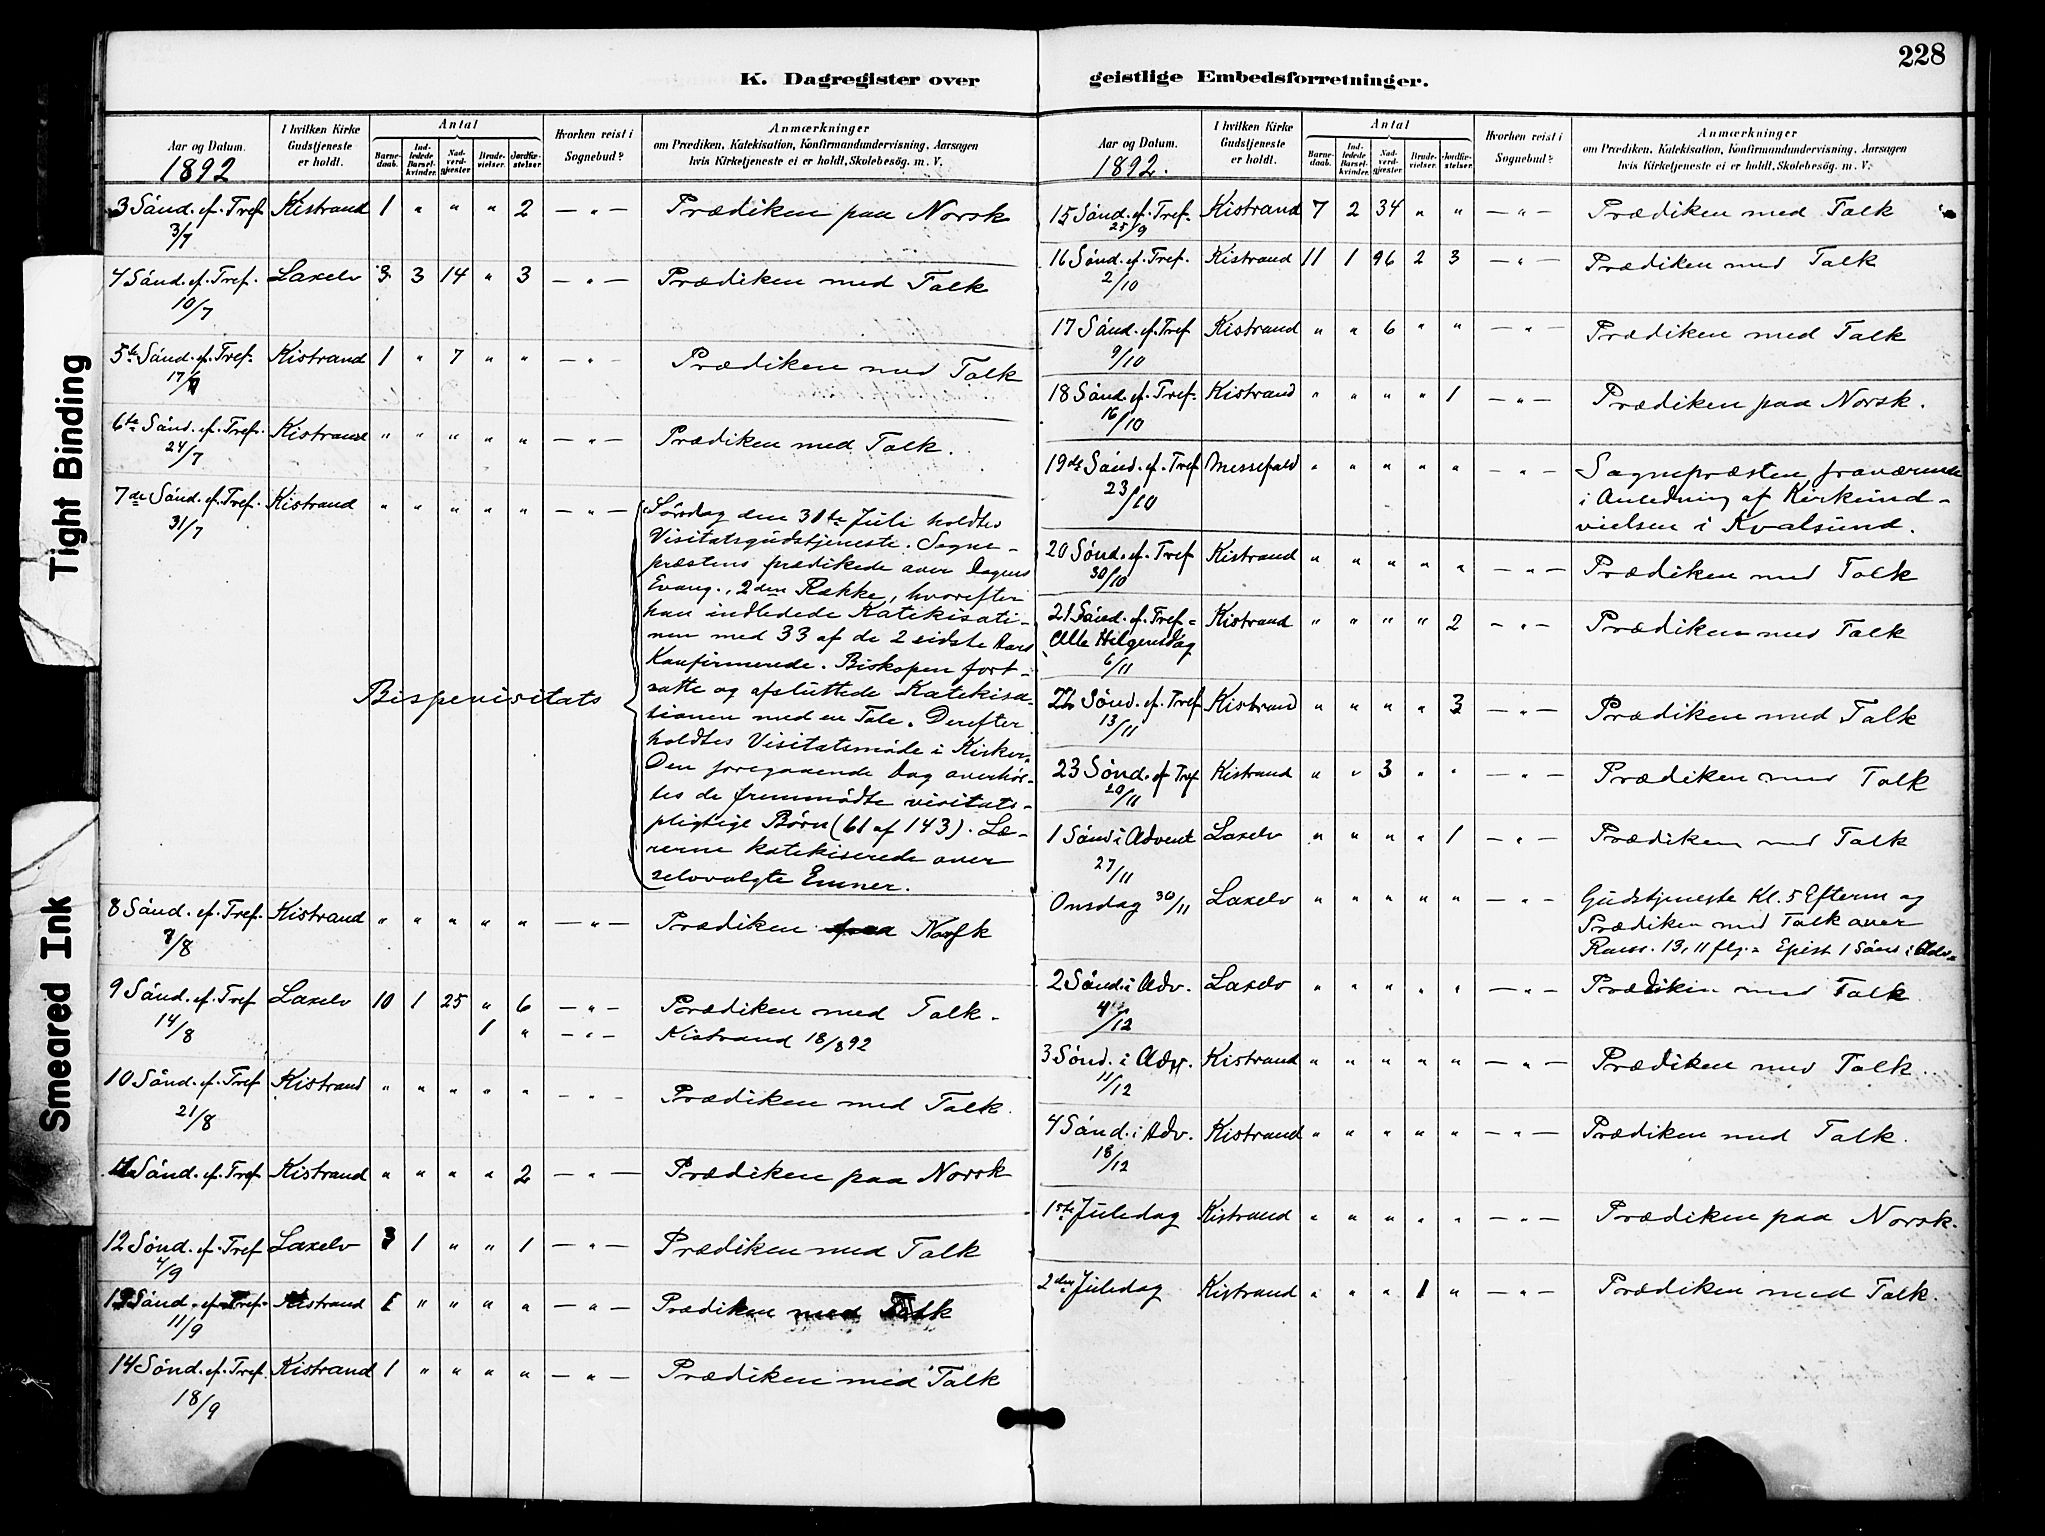 K. Dagregister over
Aar og Datum.
1892
I hvilken Kirke Gudstjeneste er holdt.
Antal
Barne-daab. Ind-ledede Barsel-kvinder. Nad-verd-gjæster. Brude-vielser. Jordfæ-stelser.
Hvorhen reist i Sognebud?
Anmærkninger
om Prædiken, Katekisation, Konfirmandundervisning, Aarsagen
hvis Kirketjeneste ei er holdt, Skolebesög. m. V.
3 Sønd. ef. Tref. 3/7 Kistrand 1 " " " 2 — " — Prædiken paa Norsk
4 Sønd. ef. Tref. 10/7 Laxelv 3 3 14 " 3 — " — Prædiken med Tolk
5te Sønd. ef. Tref. 17/7 Kistrand 1 " 7 " " — " — Prædiken med Tolk
6te Sønd. ef. Tref. 24/7 Kistrand " " " " " — " — Prædiken med Tolk.
7de Sønd. ef. Tref. 31/7 Kistrand " " " " " — " —
Bispevisitats
Søndag den 31te Juli holdtes
Visitatsgudstjeneste. Sogne-
præsten prædikede over Dagens
Evang., 2den Række, hvorefter
han indledede Katekisati-
nen med 33 af de 2 sidste Aars
Konfirmerede. Biskopen fort-
satte og afsluttede Katekisa-
tionen med en Tale. Derefter
holdtes Visitatsmøde i Kirken.
Den foregaaende Dag overhør-
tes de fremmødte visitats-
pligtige Børn (61 af 143). Læ-
rerne katekiserede over
selvvalgte Emner.
8 Sønd. ef. Tref. /8 Kistrand " " " " " — " — Prædiken paa Norsk
9 Sønd. ef. Tref 14/8 Laxelv 10 1 25 " 6 — " — Prædiken med Tolk.
1 " — " — Kistrand 18/8 92
10 Sønd. ef. Tref 21/8 Kistrand " " " " " — " — Prædiken med Tolk.
11 Sønd. ef. Tref Kistrand " " " " 2 — " — Prædiken paa Norsk
12 Sønd. ef. Tref 4/9 Laxelv 3 1 " " 1 — " — Prædiken med Tolk
13 Sønd. ef. Tref. 11/9 Kistrand 1 " " " " — " — Prædiken med Tolk
14 Sønd. ef. Tref. 18/9 Kistrand 1 " " " " — " — Prædiken med Tolk
geistlige Embedsforretninger.
228
Aar og Datum.
1892.
I hvilken Kirke Gudstjeneste er holdt.
Antal
Barne-daab. Ind-ledede Barsel-kvinder. Nad-verd-gjæster. Brude-vielser. Jordfæ-stelser.
Hvorhen reist i Sognebud?
Anmærkninger
om Prædiken, Katekisation, Konfirmandundervisning, Aarsagen
hvis Kirketjeneste ei er holdt, Skolebesög. m. V.
15 Sønd. ef. Tref. 25/9 Kistrand 7 2 34 " " — " — Prædiken med Tolk
16 Sønd. ef. Tref. 2/10 Kistrand 11 1 96 2 3 — " — Prædiken med Tolk
17 Sønd. ef. Tref 9/10 Kistrand " " 6 " " — " — Prædiken med Tolk
18 Sønd. ef. Tref. 16/10 Kistrand " " " " 1 — " — Prædiken paa Norsk.
19de Sønd. ef. Tref 23/10 Messefald " " " " " — " — Sognepræsten fraværende
i Anledning af Kirkeind-
vielsen i Kvalsund.
20 Sønd. ef. Tref 30/10 Kistrand " " " " " — " — Prædiken med Tolk
21 Sønd. ef. Tref =
Alle Helgensdag 6/11 Kistrand " " " " 2 — " — Prædiken med Tolk
22 Sønd. ef. Tref 13/11 Kistrand " " " " 3 — " — Prædiken med Tolk
23 Sønd. ef Tref 20/11 Kistrand " " 3 " " — " — Prædiken med Tolk
1 Sønd i Advent 27/11 Laxelv " " " " 1 — " — Prædiken med Tolk
Onsdag 30/11 Laxelv " " " " " — " — Gudstjeneste Kl. 5 Efterm og
Prædiken med Tolk over
Rom. 13, 11 flg. = Epist 1 Sønd i Adv.
2 Sønd. i Adv. 4/12 Laxelv " " " " " — " — Prædiken med Tolk
3 Sønd. i Adv. 11/12 Kistrand " " " " " — " — Prædiken med Tolk.
4 Sønd. i Adv. 18/12 Kistrand " " " " " — " — Prædiken med Tolk.
1ste Juledag Kistrand " " " " " — " — Prædiken paa Norsk.
2den Juledag Kistrand " " " 1 " — " — Prædiken med Tolk.
Tight Binding
Smeared Ink